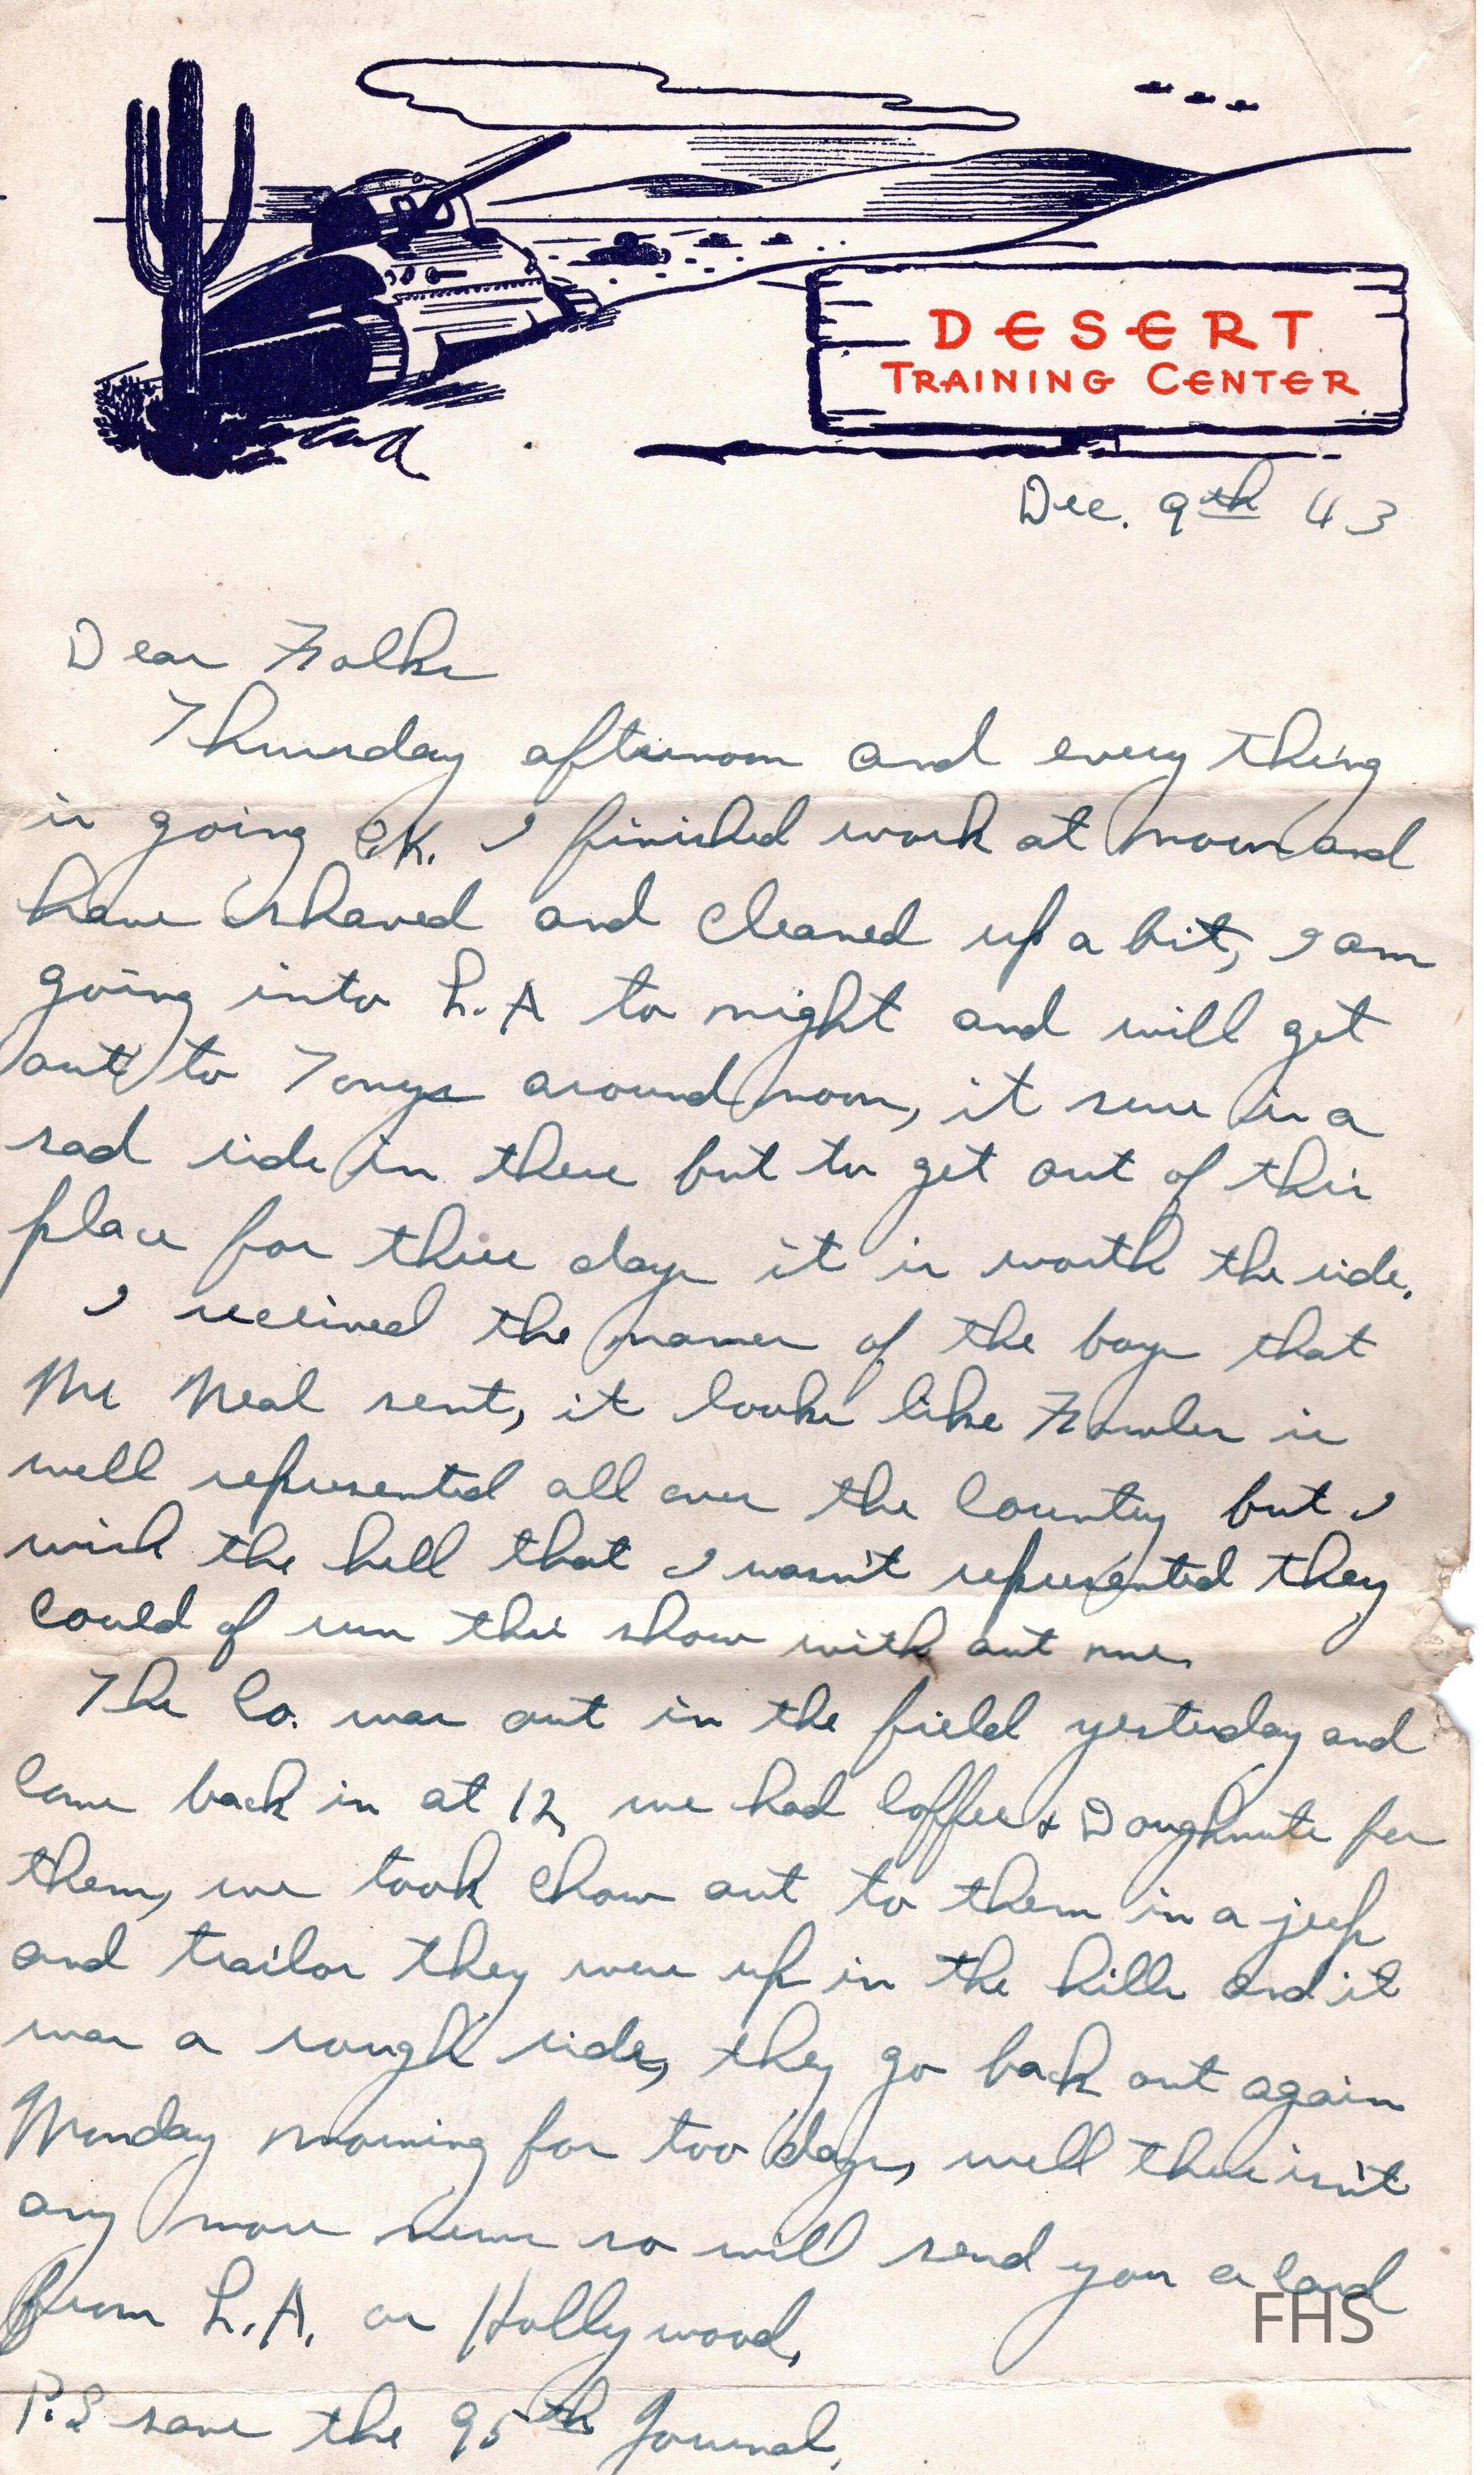 DESERT
TRAINING CENTER
Dec. 9th 43
Dear Folks
Thursday afternoon and every thing
is going O.K. I finished work at noon and
have shaved and cleaned up a bit, I am
going into L.A to night and will get
out to Tonys around noon, it sure is a
sad ride in there but to get out of this
place for three days it is worth the ride.
I received the names of the boys that
Mc Neal sent, it looks like Fowler is
well represented all over the country but I
wish the hell that I wasn't represented they
could of run this show with out me.
The Co. was out in the field yesterday and
came back in at 12, we had Coffee & Doughnuts for
them, we took chow out to them in a jeep
and trailor they were up in the hills and it
was a rough ride, they go back out again
Monday morning for too days, well there isn't
any more news so will send you a card
from L.A. or Hollywood,
FHS
P.S save the 95th Journal,